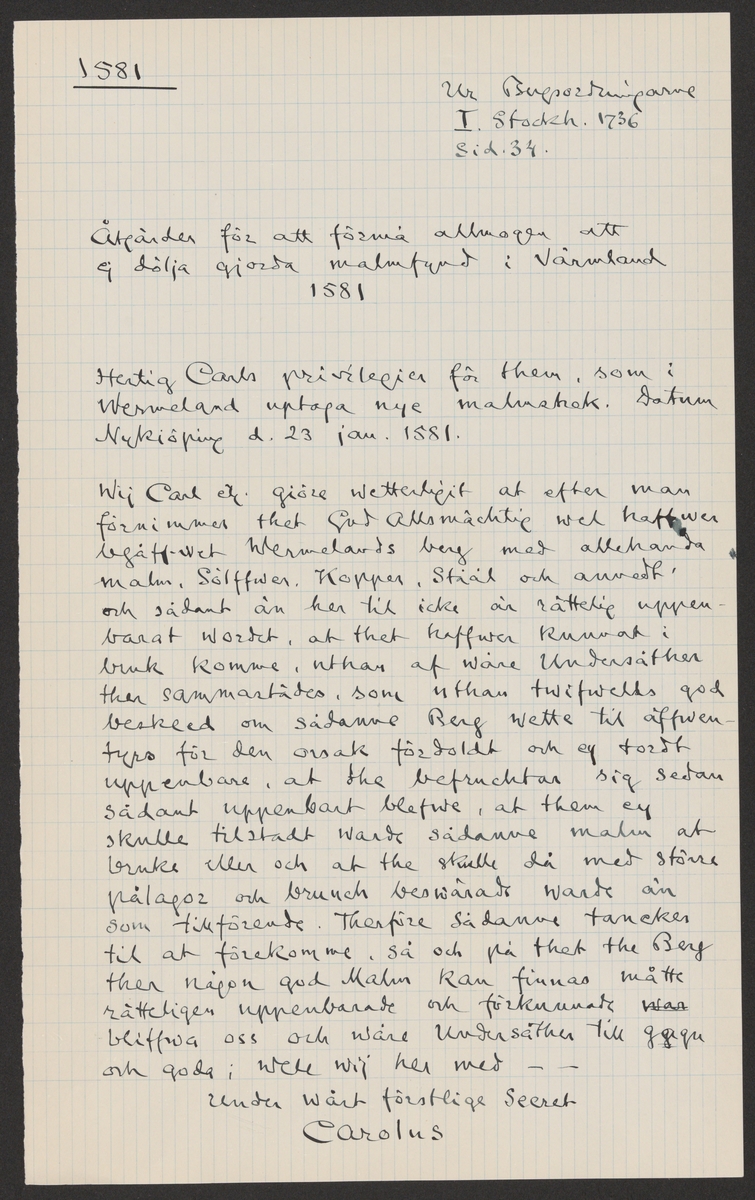 1581
Ur Bergsordningarne
I. Stockh. 1736
Sid. 34.
Åtgärder för att förmå allmogen att
ej dölja gjorda malmfynd i Värmland
1581
Hertig Carls privilegier för them, som i
Wermeland uptaga nye malmstrek. Datum
Nykiöping d. 23 jan. 1581.
Wij Carl etc. giöre wetterligit at efter man
förnimmer thet Gud Allsmächtig wel haffwer
begåffwet Wermelands berg med allehanda
malm, Sölffwer, Kopper, StååL och annedt,
och sådant än her til icke är rättelig uppen-
barat wordet, at thet haffwer kunnat i
bruk komme, uthan af wåre Undersåther
ther sammastädes, som uthan twifwells god
beskeed om sådanne Berg wette til äffwen-
tyrs för den orsak fördoldt och ey tordt
uppenbare, at the befruchtar sig sedan
sådant uppenbart blefwe, at them ey
skulle tilstadt warde sådanne malm at
bruke eller och at the skulle då med större
pålagor och brunch beswärade warde än
som tillförende. Therföre sådanne tancker
til at förekomme, så och på thet the Berg
ther någon god Malm kan finnas måtte
rätteligen uppenbarade och förkunnade war
bliffwa oss och wåre Undersåther till gagn
och goda; wele wij her med – –
Under Wårt förstlige Secret
Carolus